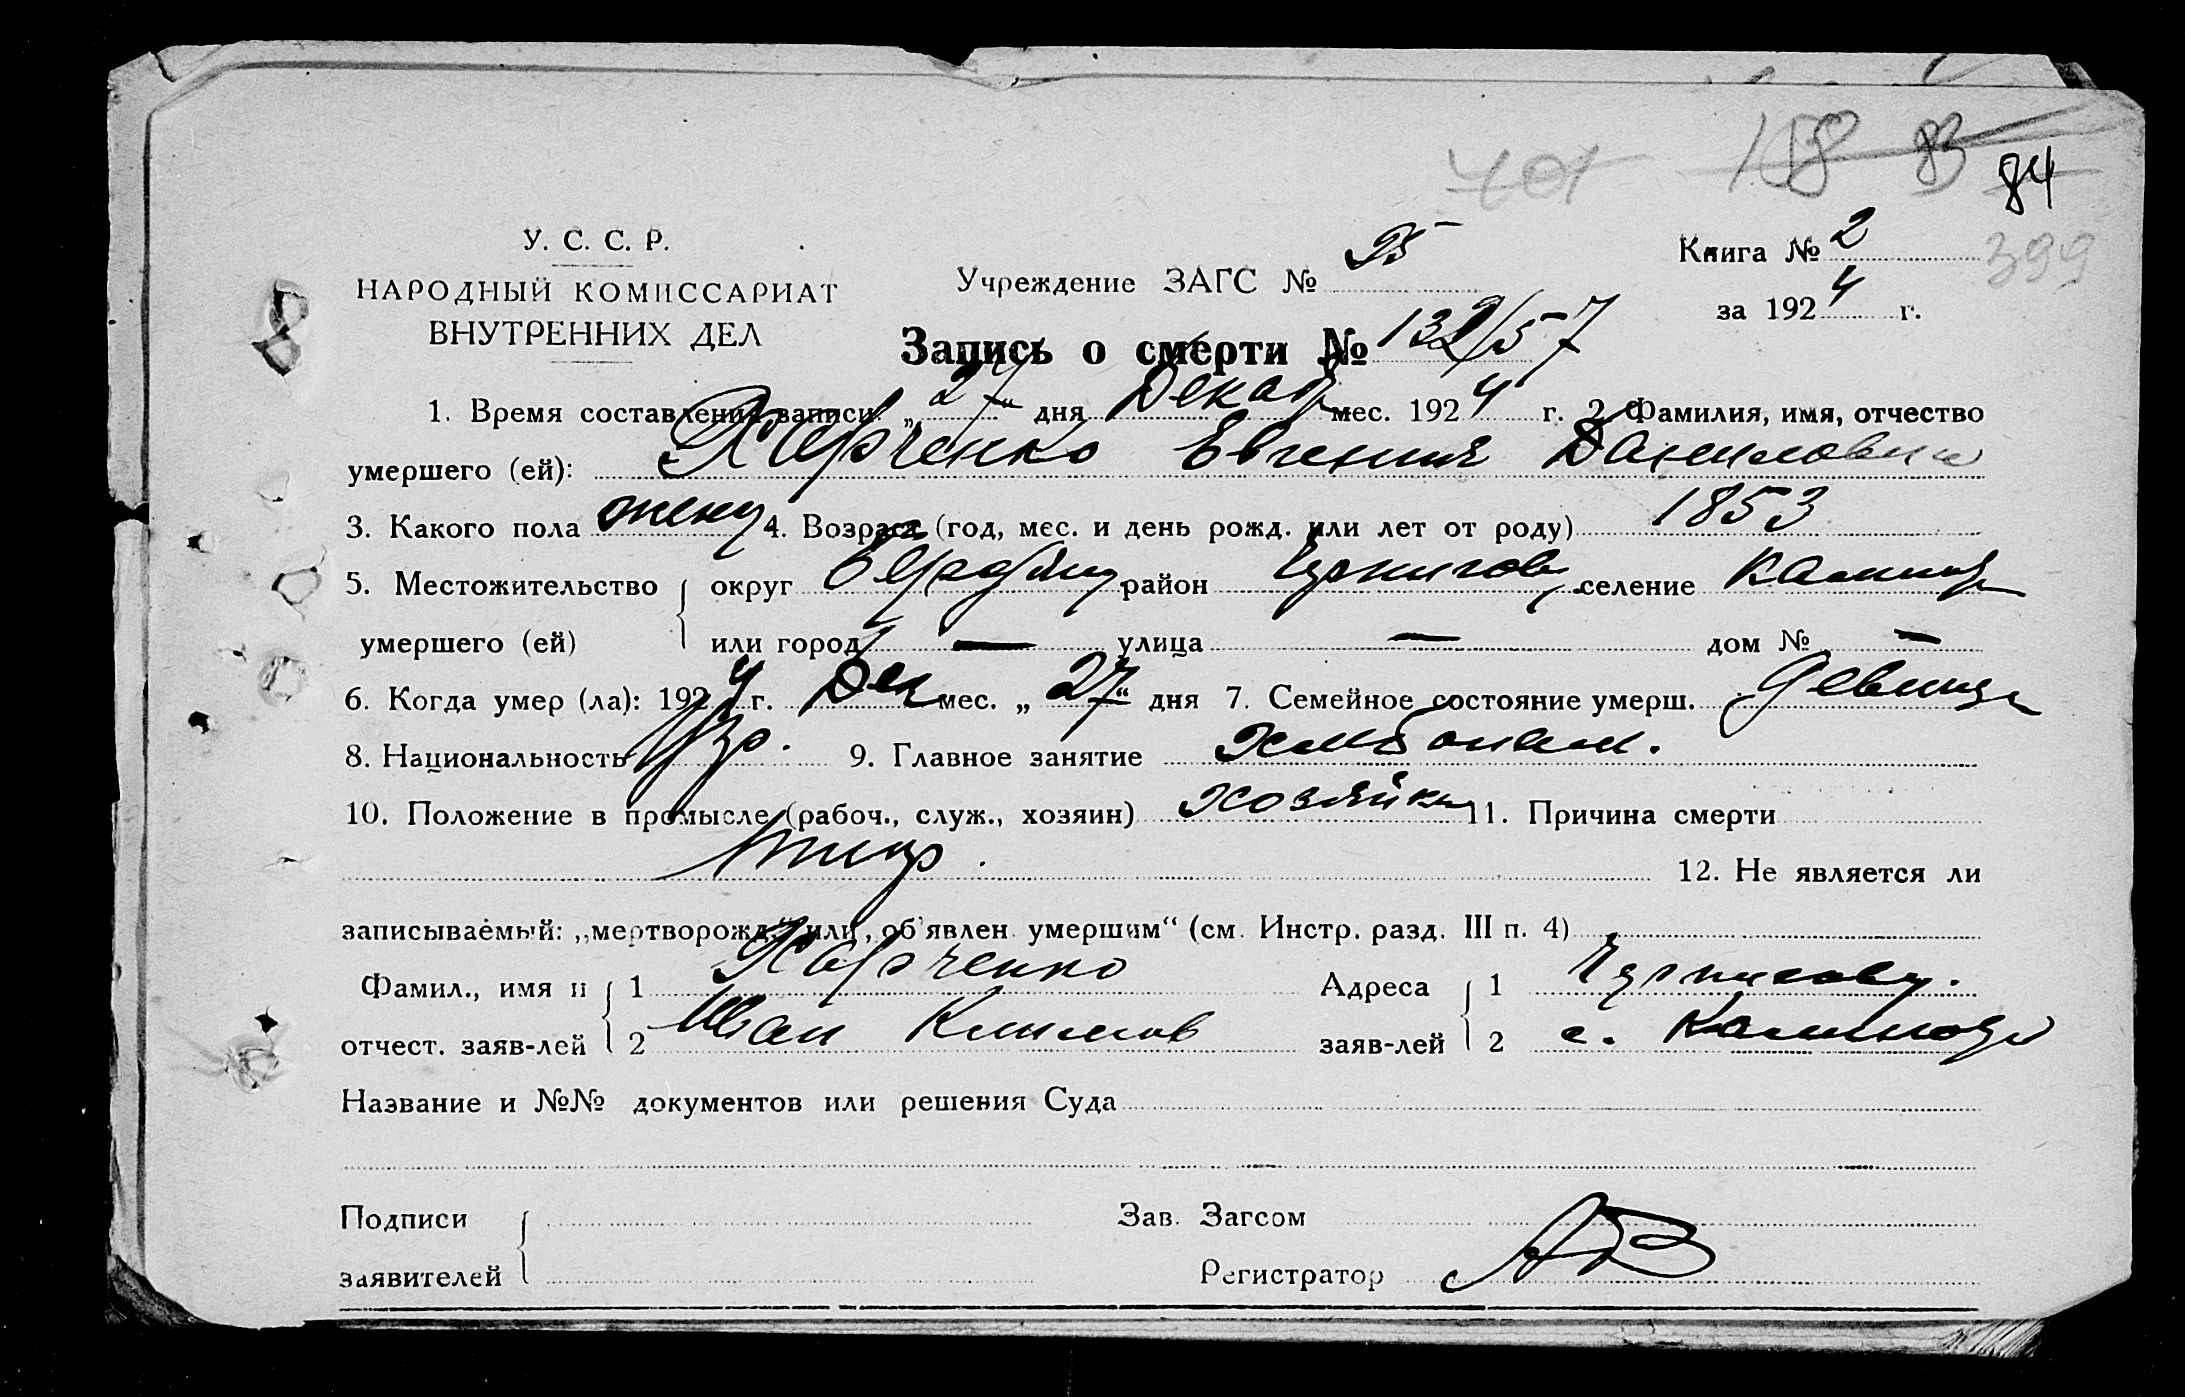 401 158 83 84
У. С. С. Р.
Книга № 2 399
НАРОДНЫЙ КОМИССАРИАТ
ВНУТРЕННИХ ДЕЛ
Учреждение ЗАГС №
за 1924 г.
Запись о смерти № 132/57
1. Время составления записи: „27“ дня Декаб мес. 1924 г. 2. Фамилия, имя, отчество
умершего (ей): Харченко Евгения Даниловна
3. Какого пола женс 4. Возраст (год, мес. и день рожд. или лет от роду) 1853
5. Местожительство округ район селение
умершего (ей) или город — улица — дом № —
6. Когда умер (ла): 1924 г. Дек мес. „27“ дня 7. Семейное состояние умерш. девица
8. Национальность 9. Главное занятие
10. Положение в промысле (рабоч., служ., хозяин) хозяйка 11. Причина смерти
12. Не является ли
записываемый: „мертворожд.“ или „об'явлен умершим“ (см. Инстр. разд. III п. 4)
Фамил., имя и 1 Харченко Адреса 1
отчест. заяв-лей 2 Иван Климов заяв-лей 2 с.
Название и №№ документов или решения Суда
Подписи Зав. Загсом
заявителей Регистратор